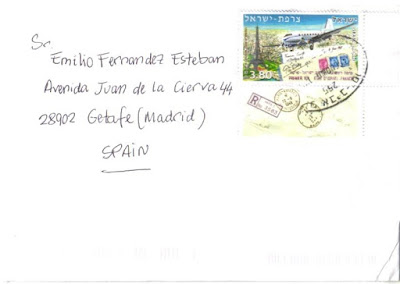 Sr.
Emilio Fernandez Esteban
Avenida Juan de la Cierva 44
28902 Getafe (Madrid)
SPAIN
צרפת-ישראל
ישראל
3.80
R